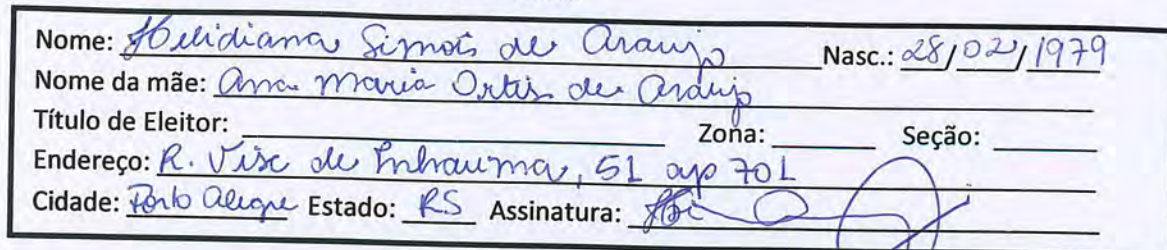 Nome: Helidiana Simois de Araujo Nasc.: 28/02/1979
Nome da mãe: Ana Maria Ortis de Araujo
Título de Eleitor: Zona: Seção:
Endereço: R. Visc de Inhauma, 51 ap 701
Cidade: Porto Alegre Estado: RS Assinatura: